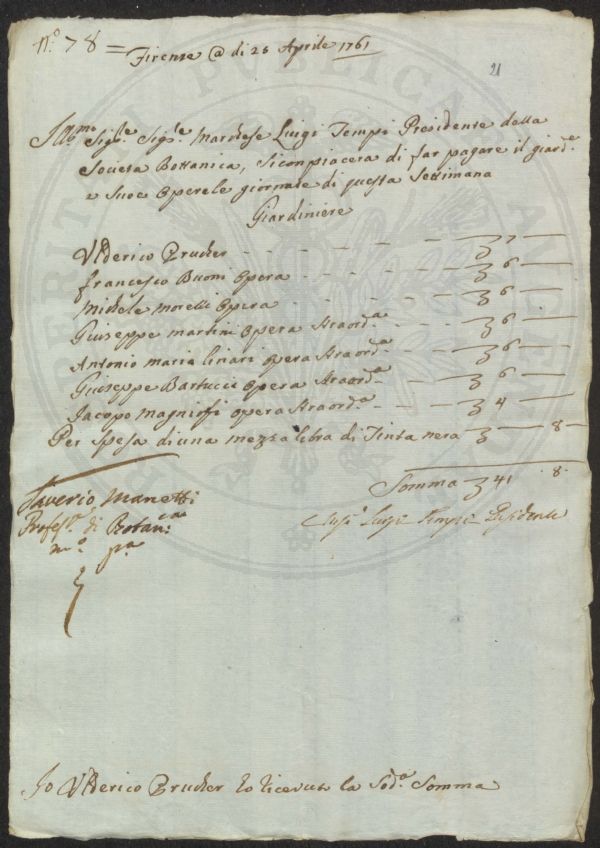 N.º 78 =
Firenze @ di 25 Aprile 1761
21
Ill.mo Sig.re Sig.re Marchese Luigi Tempi Presidente della
Societa Bottanica, Si conpiacera di far pagare il giard.e
e Suoe Operele giornate di questa Settimana
Giardiniere
Ulderico Prucker - - - - - 7 —
Francesco Buoni Opera - - - - 6 —
Michele Morelli Opera - - - - 6 —
Giuseppe Martini Opera Straord.a - - 6 —
Antonio Maria Linari Opera Straord.a - - 6 —
Giuseppe Bartucci Opera Straord.a - - 6 —
Jacopo Magniofi opera Straord.a - - 4 —
Per Spesa di una mezza libra di Tinta nera — 8 —
Somma 41 . 8 .
Saverio Manetti
Profess.e di Botan.ca
m.o p.a
Luigi Tempi Presidente
Io Ulderico Prucker ho ricevuto la Sod.a Somma
PERITI PUBLICAE